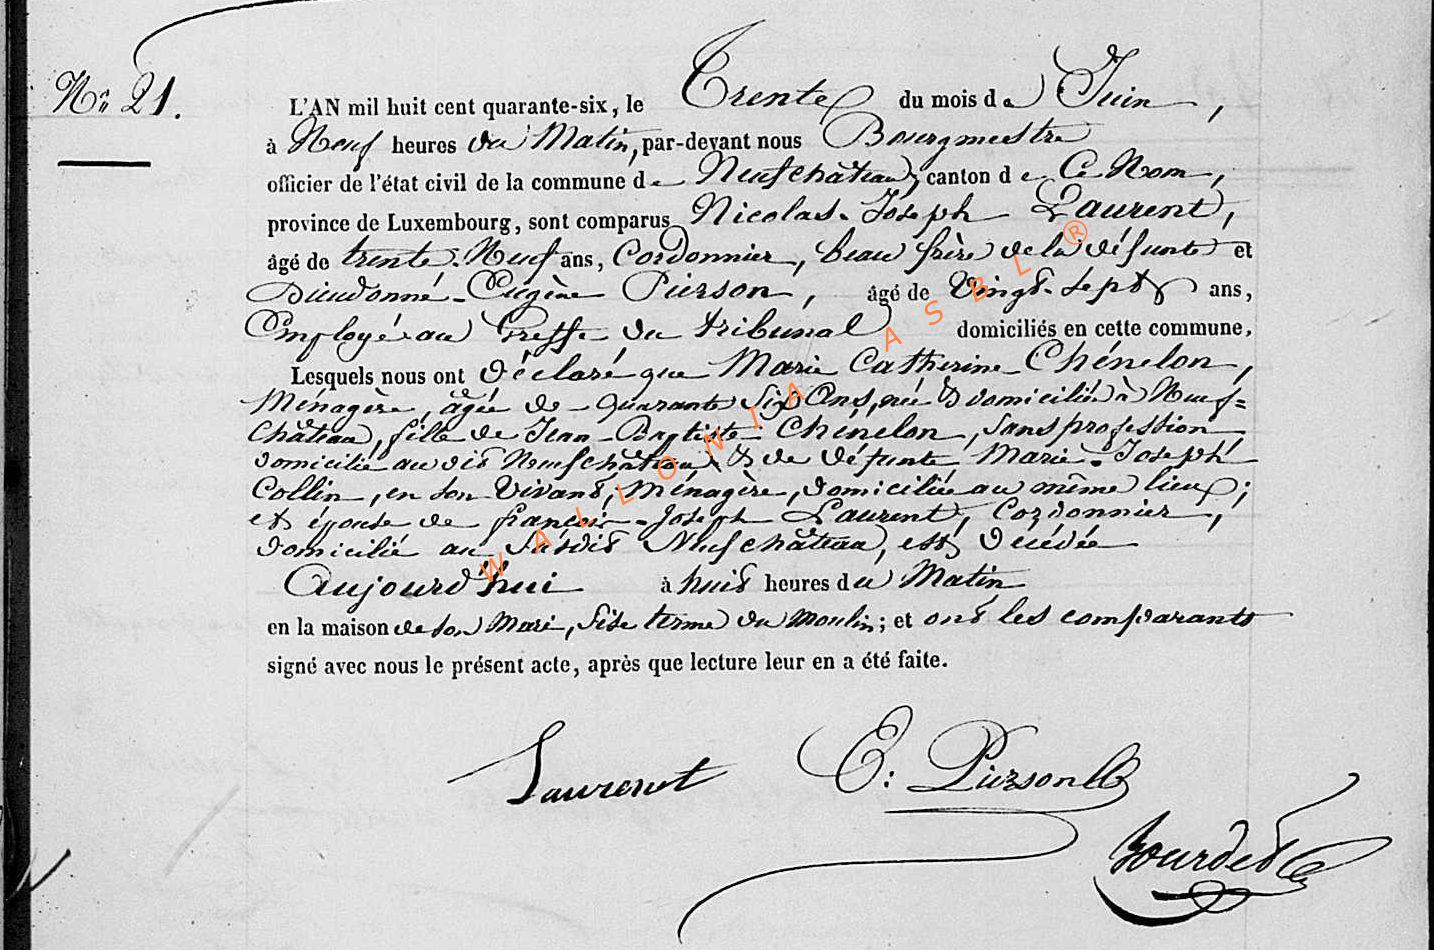 No 21.
L'AN mil huit cent quarante-six, le Trente du mois de Juin,
à Neuf heures du Matin, par-devant nous Bourgmestre
officier de l'état civil de la commune de Neufchâteau, canton de Ce Nom,
province de Luxembourg, sont comparus Nicolas-Joseph Laurent,
âgé de trente-Neuf ans, Cordonnier, beau frère de la défunte et
Dieudonné-Eugène Pierson, âgé de Vingt-Sept ans,
Employé au Greffe du tribunal domiciliés en cette commune,
Lesquels nous ont déclaré que Marie Catherine Chénelon,
Ménagère, âgée de quarante Six Ans, née & domiciliée à Neuf=
château, fille de Jean-Baptiste Chénelon, Sans profession,
domicilié au dit Neufchâteau, & de défunte Marie-Joseph
Collin, en son Vivant, Ménagère, domiciliée au même lieu;
et épouse de françois-Joseph Laurent, Cordonnier,
domicilié au susdit Neufchâteau, est décédée
Aujourd'hui à huit heures du Matin
en la maison de son Mari, sise terme du moulin; et ont les comparants
signé avec nous le présent acte, après que lecture leur en a été faite.
Laurent E: Pierson
Bourdet
WALLONIA ASBL ®